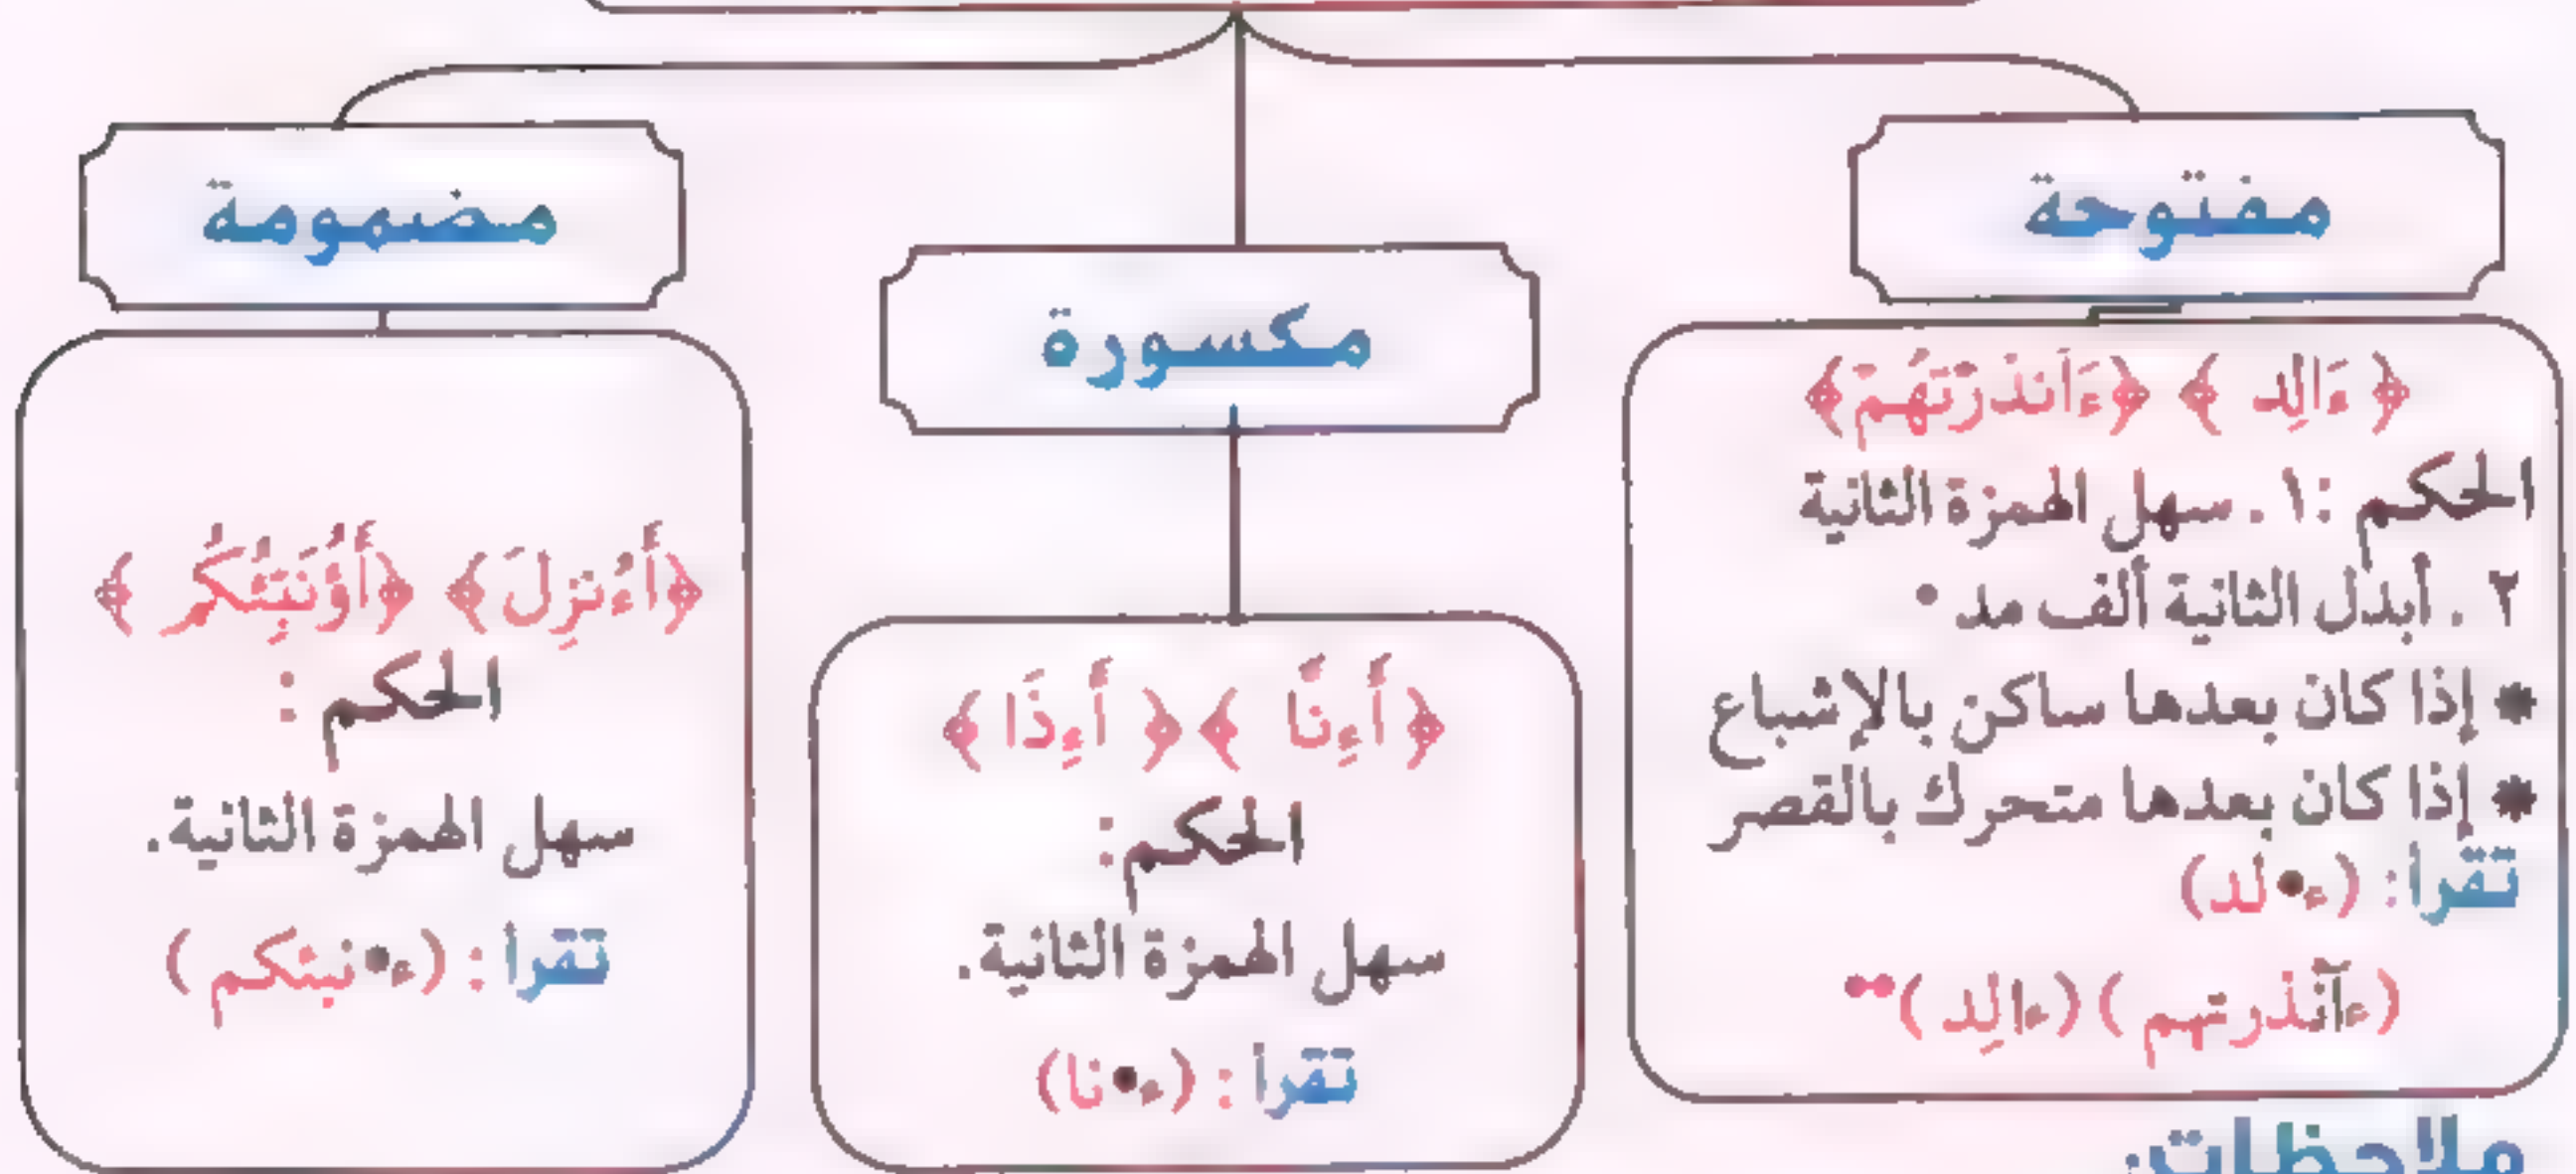 مفتوحة
﴿ ءَالِد ﴾ ﴿ءَأَنذَرْتَهُمْ﴾
الحكم :١. سهل الهمزة الثانية
٢ . أبدل الثانية ألف مد •
* إذا كان بعدها ساكن بالإشباع
* إذا كان بعدها متحرك بالقصر
تقرأ: (ء•لد)
(ءآنذرتهم )(ءالِد )••
مكسورة
﴿ أَءِنَّا ﴾﴿ أَءِذَا ﴾
الحكم:
سهل الهمزة الثانية.
تقرأ : (ء•نا)
مضمومة
﴿أَءُنزِلَ﴾ ﴿أَؤُنَبِّئُكُر ﴾
الحكم :
سهل الهمزة الثانية.
تقرأ : (ء•نبئكم )
ملاحظات: